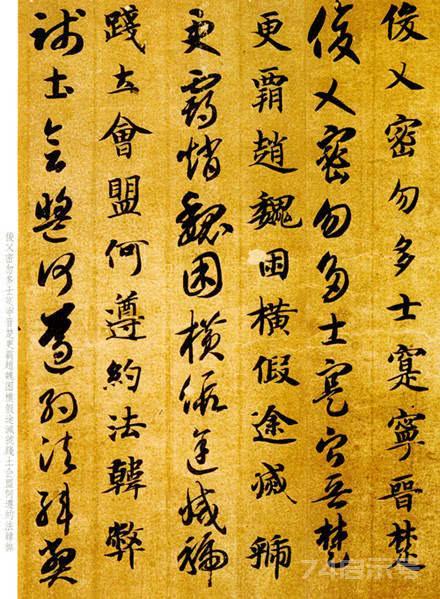 俊乂密勿多士寔寧晉楚
俊乂密勿多士寔寧晉楚
更霸趙魏困橫假途滅虢
更霸趙魏困橫假途滅虢
踐土會盟何遵約法韓弊
踐土會盟何遵約法韓弊
俊乂密勿多士寔寧晉楚更霸趙魏困橫假途滅虢踐土会盟何遵約法韓弊